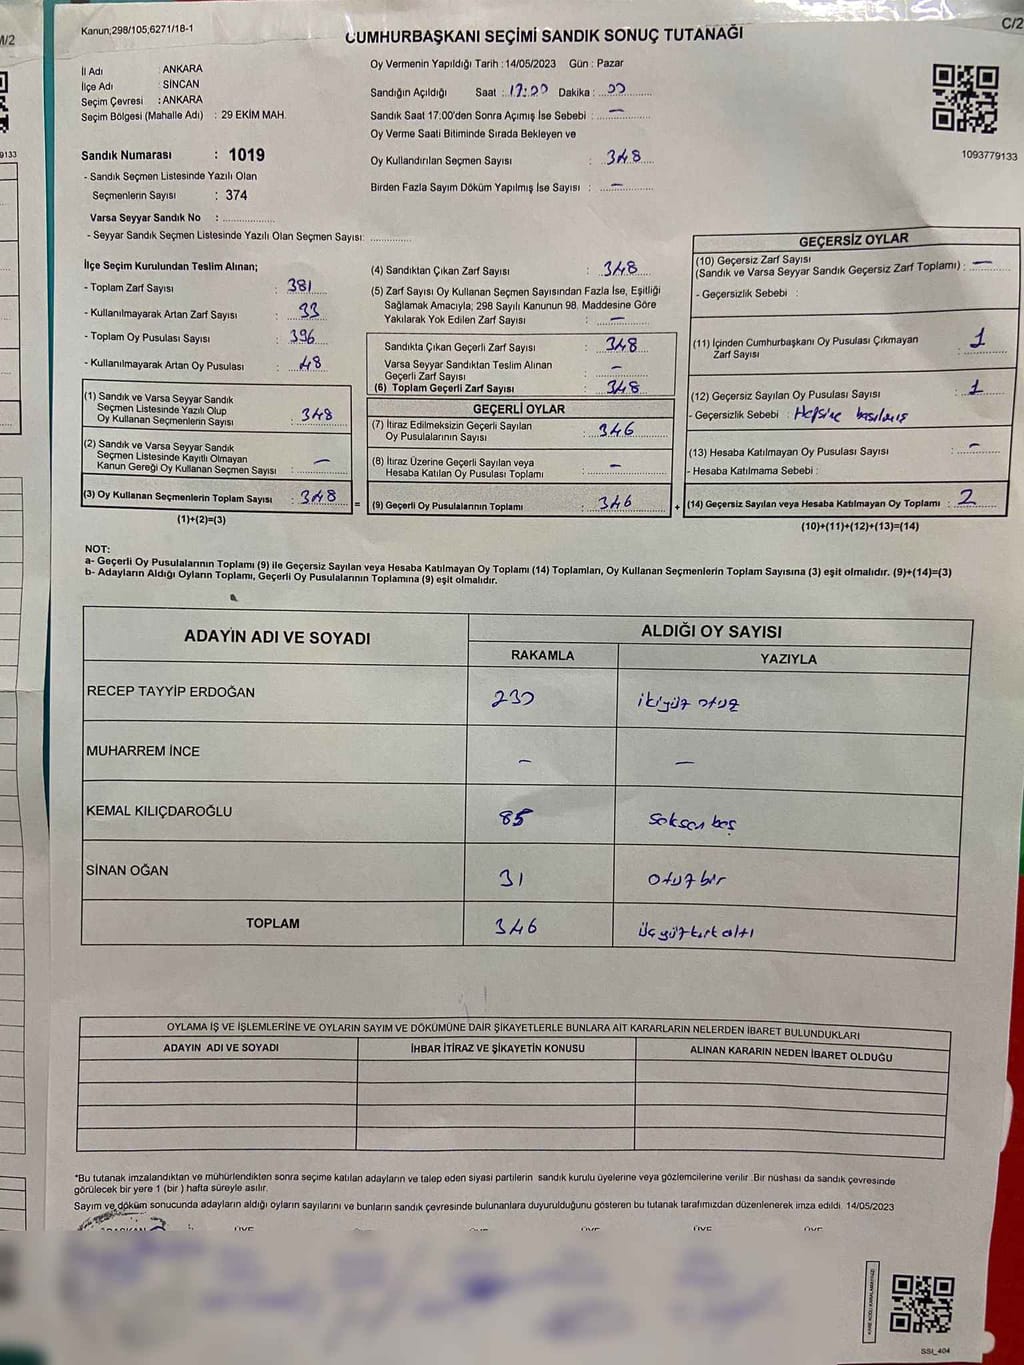 Kanun;298/105,6271/18-1
CUMHURBAŞKANI SEÇİMİ SANDIK SONUÇ TUTANAĞI
C/2
M/2
İl Adı : ANKARA
İlçe Adı : SİNCAN
Seçim Çevresi : ANKARA
Seçim Bölgesi (Mahalle Adı) : 29 EKİM MAH.
Sandık Numarası : 1019
- Sandık Seçmen Listesinde Yazılı Olan
Seçmenlerin Sayısı : 374
Varsa Seyyar Sandık No :
- Seyyar Sandık Seçmen Listesinde Yazılı Olan Seçmen Sayısı:
Oy Vermenin Yapıldığı Tarih : 14/05/2023 Gün : Pazar
Sandığın Açıldığı Saat : 17:00 Dakika : 00
Sandık Saat 17:00'den Sonra Açımış İse Sebebi : —
Oy Verme Saati Bitiminde Sırada Bekleyen ve
Oy Kullandırılan Seçmen Sayısı : 348
Birden Fazla Sayım Döküm Yapılmış İse Sayısı : —
1093779133
9133
İlçe Seçim Kurulundan Teslim Alınan;
- Toplam Zarf Sayısı : 381
- Kullanılmayarak Artan Zarf Sayısı : 33
- Toplam Oy Pusulası Sayısı : 396
- Kullanılmayarak Artan Oy Pusulası : 48
(1) Sandık ve Varsa Seyyar Sandık
Seçmen Listesinde Yazılı Olup
Oy Kullanan Seçmenlerin Sayısı : 348
(2) Sandık ve Varsa Seyyar Sandık
Seçmen Listesinde Kayıtlı Olmayan
Kanun Gereği Oy Kullanan Seçmen Sayısı : —
(3) Oy Kullanan Seçmenlerin Toplam Sayısı : 348
(1)+(2)=(3)
(4) Sandıktan Çıkan Zarf Sayısı : 348
(5) Zarf Sayısı Oy Kullanan Seçmen Sayısından Fazla İse, Eşitliği
Sağlamak Amacıyla; 298 Sayılı Kanunun 98. Maddesine Göre
Yakılarak Yok Edilen Zarf Sayısı : —
Sandıkta Çıkan Geçerli Zarf Sayısı : 348
Varsa Seyyar Sandıktan Teslim Alınan
Geçerli Zarf Sayısı : —
(6) Toplam Geçerli Zarf Sayısı : 348
GEÇERLİ OYLAR
(7) İtiraz Edilmeksizin Geçerli Sayılan
Oy Pusulalarının Sayısı : 346
(8) İtiraz Üzerine Geçerli Sayılan veya
Hesaba Katılan Oy Pusulası Toplamı : —
= (9) Geçerli Oy Pusulalarının Toplamı : 346
GEÇERSİZ OYLAR
(10) Geçersiz Zarf Sayısı
(Sandık ve Varsa Seyyar Sandık Geçersiz Zarf Toplamı) : —
- Geçersizlik Sebebi :
(11) İçinden Cumhurbaşkanı Oy Pusulası Çıkmayan
Zarf Sayısı : 1
(12) Geçersiz Sayılan Oy Pusulası Sayısı : 1
- Geçersizlik Sebebi : Hepsine basılmış
(13) Hesaba Katılmayan Oy Pusulası Sayısı : —
- Hesaba Katılmama Sebebi :
+ (14) Geçersiz Sayılan veya Hesaba Katılmayan Oy Toplamı : 2
(10)+(11)+(12)+(13)=(14)
NOT:
a- Geçerli Oy Pusulalarının Toplamı (9) ile Geçersiz Sayılan veya Hesaba Katılmayan Oy Toplamı (14) Toplamları, Oy Kullanan Seçmenlerin Toplam Sayısına (3) eşit olmalıdır. (9)+(14)=(3)
b- Adayların Aldığı Oyların Toplamı, Geçerli Oy Pusulalarının Toplamına (9) eşit olmalıdır.
ADAYIN ADI VE SOYADI
ALDIĞI OY SAYISI
RAKAMLA YAZIYLA
RECEP TAYYİP ERDOĞAN 230 ikiyüz otuz
MUHARREM İNCE — —
KEMAL KILIÇDAROĞLU 85 Seksen beş
SİNAN OĞAN 31 Otuz bir
TOPLAM 346 Üçyüz kırk altı
OYLAMA İŞ VE İŞLEMLERİNE VE OYLARIN SAYIM VE DÖKÜMÜNE DAİR ŞİKAYETLERLE BUNLARA AİT KARARLARIN NELERDEN İBARET BULUNDUKLARI
ADAYIN ADI VE SOYADI İHBAR İTİRAZ VE ŞİKAYETİN KONUSU ALINAN KARARIN NEDEN İBARET OLDUĞU
*Bu tutanak imzalandıktan ve mühürlendikten sonra seçime katılan adayların ve talep eden siyasi partilerin sandık kurulu üyelerine veya gözlemcilerine verilir. Bir nüshası da sandık çevresinde
görülecek bir yere 1 (bir ) hafta süreyle asılır.
Sayım ve döküm sonucunda adayların aldığı oyların sayılarını ve bunların sandık çevresinde bulunanlara duyurulduğunu gösteren bu tutanak tarafımızdan düzenlenerek imza edildi. 14/05/2023
BAŞKAN ÜYE ÜYE ÜYE ÜYE ÜYE
KARE KODU KARALAMAYINIZ!
SSI_404